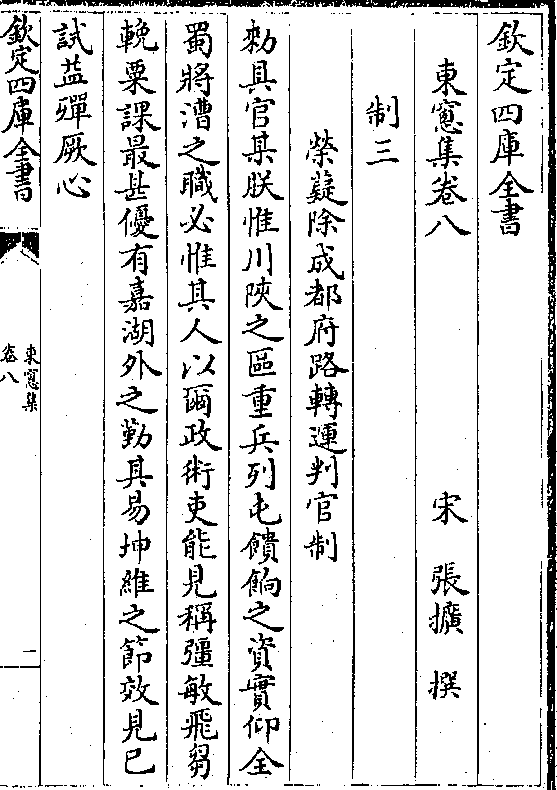 欽定四庫全書
東窻集卷八
宋 張擴 撰
制三
榮薿除成都府路轉運判官制
勅具官某朕惟川陜之區重兵列屯饋餉之資實仰全
蜀將漕之職必惟其人以爾政術吏能見稱彊敏飛芻
輓粟課最甚優有嘉湖外之勤具易坤維之節效見已
試益殫厥心
欽定四庫全書
東窻集
卷八
一